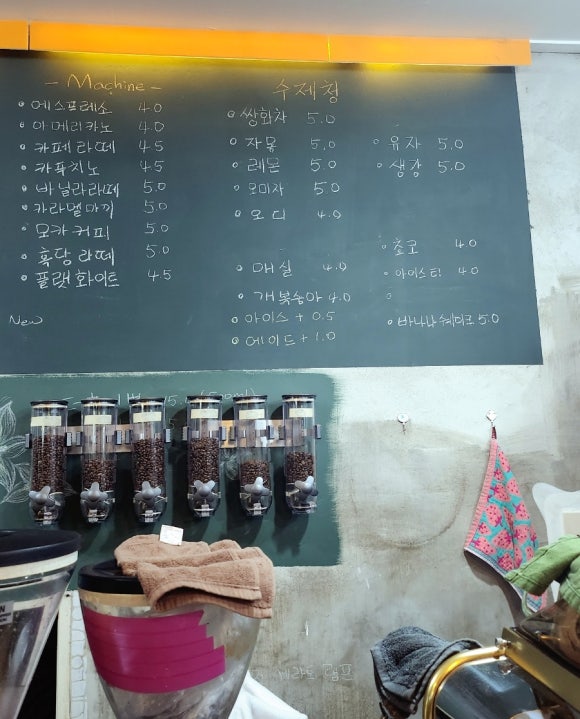 - Machine -
에스프레소 4.0
아메리카노 4.0
카페라떼 4.5
카푸치노 4.5
바닐라라떼 5.0
카라멜마끼 5.0
모카커피 5.0
흑당라떼 5.0
플랫화이트 4.5
New
수제청
쌍화차 5.0
자몽 5.0
레몬 5.0
오미자 5.0
오디 4.0
매실 4.0
개복숭아 4.0
아이스 + 0.5
에이드 + 1.0
유자 5.0
생강 5.0
초코 4.0
아이스티 4.0
바나나 쉐이크 5.0